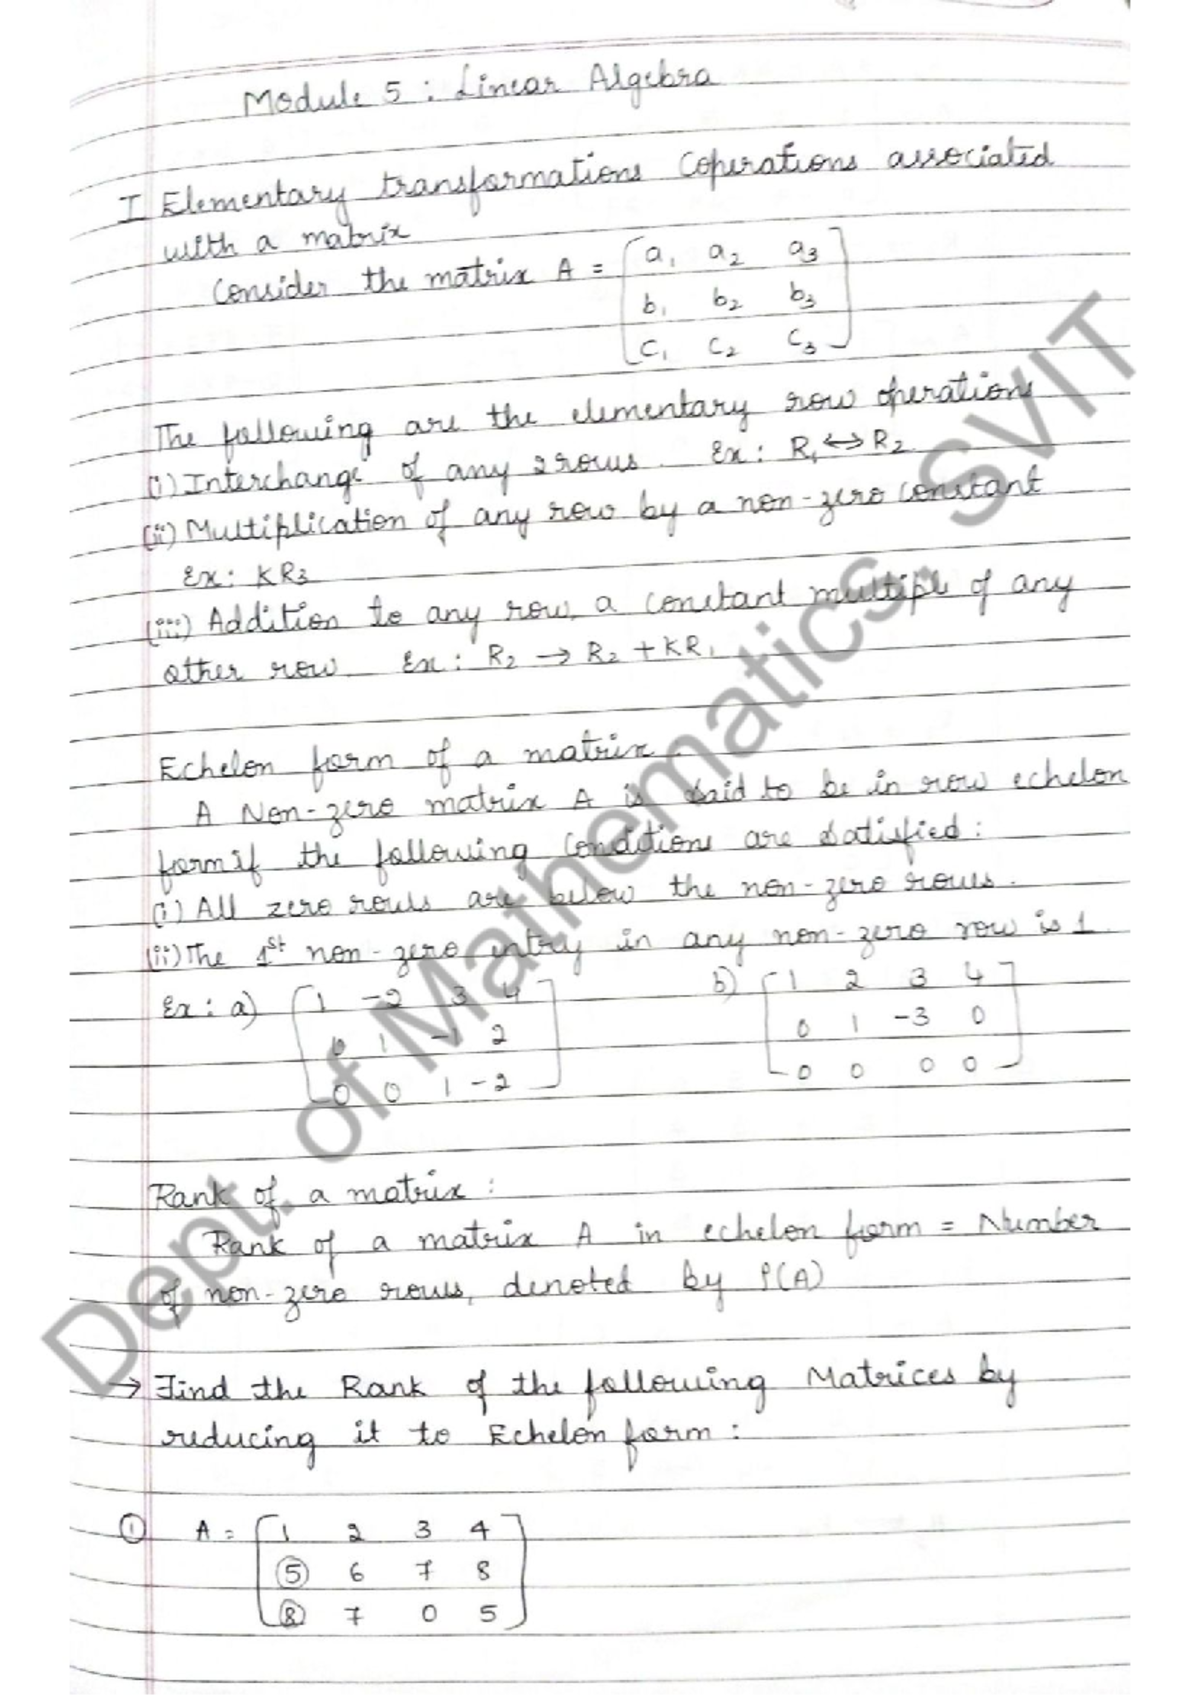 Module 5 : Linear Algebra
I Elementary transformations (operations associated
with a matrix
Consider the matrix A = [a₁ a₂ a₃
b₁ b₂ b₃
c₁ c₂ c₃]
The following are the elementary row operations
(i) Interchange of any 2 rows. Ex: R₁ ↔ R₂.
(ii) Multiplication of any row by a non-zero constant
Ex: KR₃
(iii) Addition to any row, a constant multiple of any
other row. Ex: R₂ → R₂ + KR₁
Echelon form of a matrix.
A Non-zero matrix A is said to be in row echelon
form if the following conditions are satisfied:
(i) All zero rows are below the non-zero rows.
(ii) The 1st non-zero entry in any non-zero row is 1.
Ex: a) [1 -2 3 4
0 1 -1 2
0 0 1 -2]
b) [1 2 3 4
0 1 -3 0
0 0 0 0]
Rank of a matrix:
Rank of a matrix A in echelon form = Number
of non-zero rows, denoted by ρ(A)
→ Find the Rank of the following Matrices by
reducing it to Echelon form:
① A = [1 2 3 4
⑤ 6 7 8
⑧ 7 0 5]
Dept. of Mathematics. SVIT